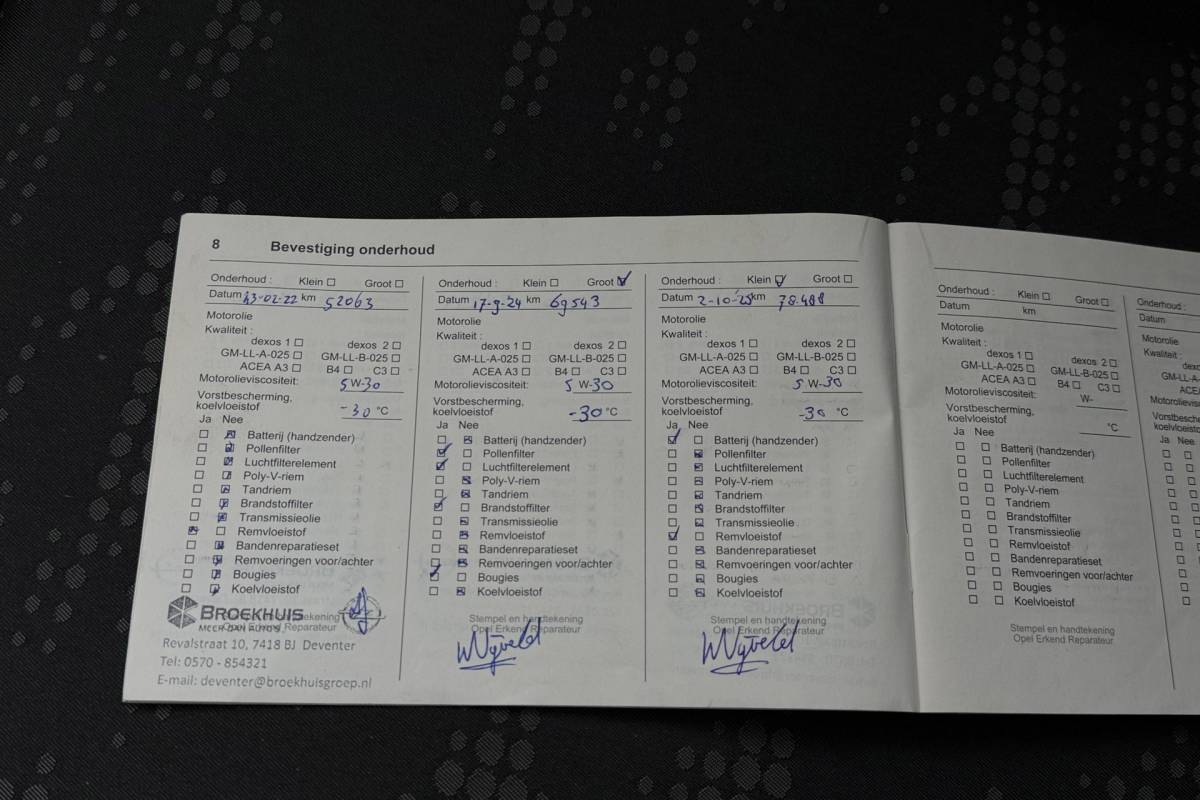 8 Bevestiging onderhoud
Onderhoud : Klein ☐ Groot ☐
Datum 13-02-22 km 52063
Motorolie
Kwaliteit :
dexos 1 ☐ dexos 2 ☐
GM-LL-A-025 ☐ GM-LL-B-025 ☐
ACEA A3 ☐ B4 ☐ C3 ☐
Motorolieviscositeit: 5 W-30
Vorstbescherming,
koelvloeistof -30 °C
Ja Nee
Batterij (handzender)
Pollenfilter
Luchtfilterelement
Poly-V-riem
Tandriem
Brandstoffilter
Transmissieolie
Remvloeistof
Bandenreparatieset
Remvoeringen voor/achter
Bougies
Koelvloeistof
BROEKHUIS
Revalstraat 10, 7418 BJ Deventer
Tel: 0570 - 854321
E-mail: deventer@broekhuisgroep.nl
Onderhoud : Klein ☐ Groot ☑
Datum 17-9-24 km 69543
Motorolie
Kwaliteit :
dexos 1 ☐ dexos 2 ☐
GM-LL-A-025 ☐ GM-LL-B-025 ☐
ACEA A3 ☐ B4 ☐ C3 ☐
Motorolieviscositeit: 5 W-30
Vorstbescherming,
koelvloeistof -30 °C
Ja Nee
Batterij (handzender)
Pollenfilter
Luchtfilterelement
Poly-V-riem
Tandriem
Brandstoffilter
Transmissieolie
Remvloeistof
Bandenreparatieset
Remvoeringen voor/achter
Bougies
Koelvloeistof
Stempel en handtekening
Opel Erkend Reparateur
Onderhoud : Klein ☑ Groot ☐
Datum 2-10-25 km 78.488
Motorolie
Kwaliteit :
dexos 1 ☐ dexos 2 ☐
GM-LL-A-025 ☐ GM-LL-B-025 ☐
ACEA A3 ☐ B4 ☐ C3 ☐
Motorolieviscositeit: 5 W-30
Vorstbescherming,
koelvloeistof -30 °C
Ja Nee
Batterij (handzender)
Pollenfilter
Luchtfilterelement
Poly-V-riem
Tandriem
Brandstoffilter
Transmissieolie
Remvloeistof
Bandenreparatieset
Remvoeringen voor/achter
Bougies
Koelvloeistof
Stempel en handtekening
Opel Erkend Reparateur
Onderhoud : Klein ☐ Groot ☐
Datum km
Motorolie
Kwaliteit :
dexos 1 ☐ dexos 2 ☐
GM-LL-A-025 ☐ GM-LL-B-025 ☐
ACEA A3 ☐ B4 ☐ C3 ☐
Motorolieviscositeit: W-
Vorstbescherming,
koelvloeistof °C
Ja Nee
Batterij (handzender)
Pollenfilter
Luchtfilterelement
Poly-V-riem
Tandriem
Brandstoffilter
Transmissieolie
Remvloeistof
Bandenreparatieset
Remvoeringen voor/achter
Bougies
Koelvloeistof
Stempel en handtekening
Opel Erkend Reparateur
Onderhoud :
Datum
Motorolie
Kwaliteit :
Ja Nee